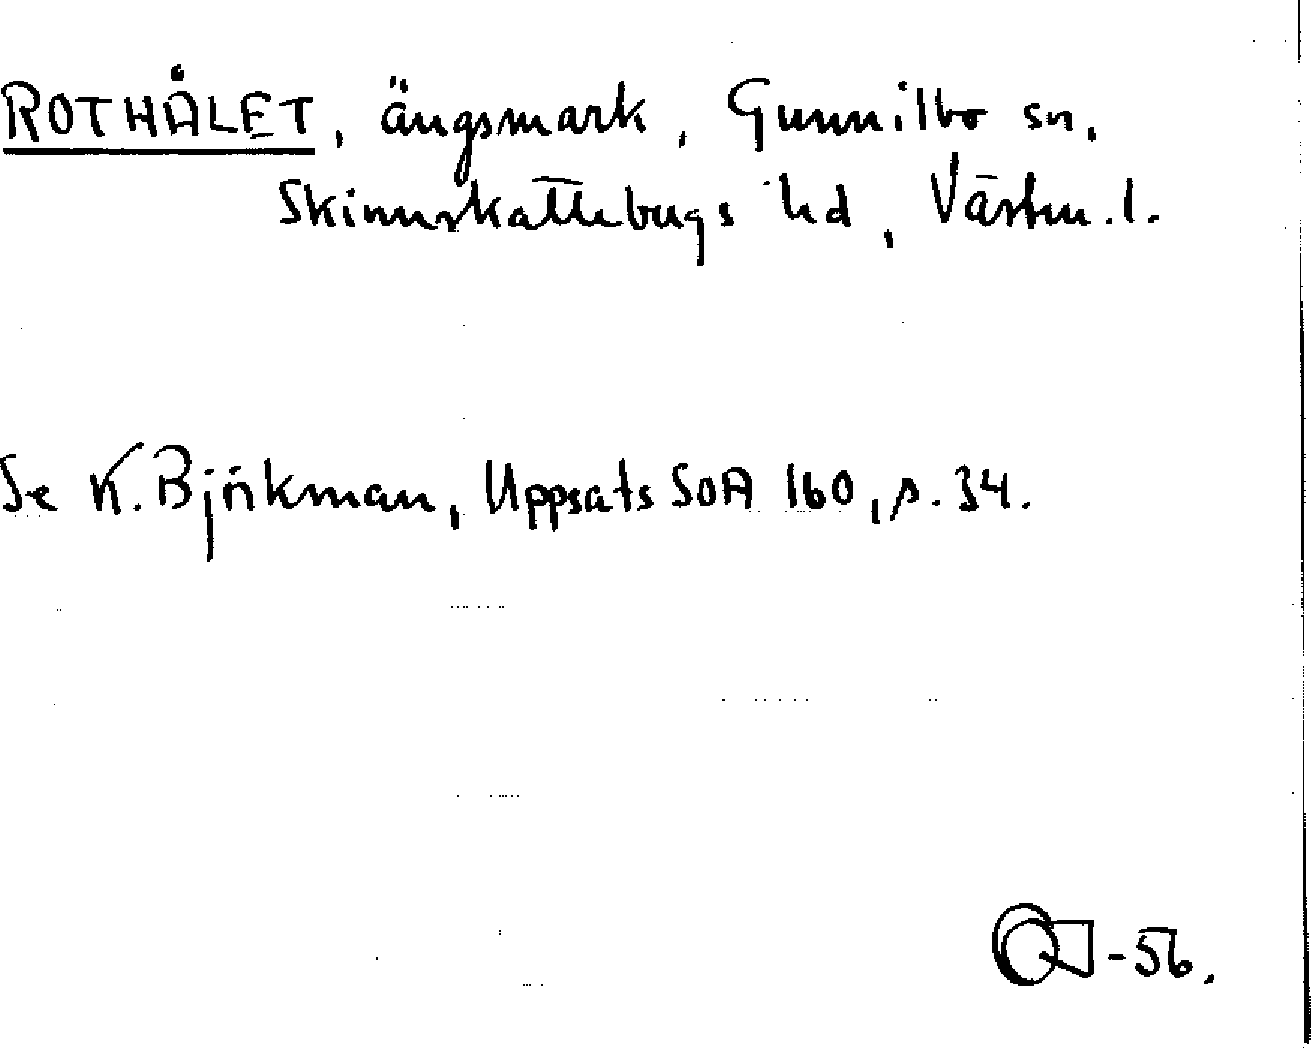 ROTHÅLET, ängsmark, Gunnilbo sn.
Skinnskattebergs hd, Västm. l.
Se K. Björkman, Uppsats SOA 160, s. 34.
-56.